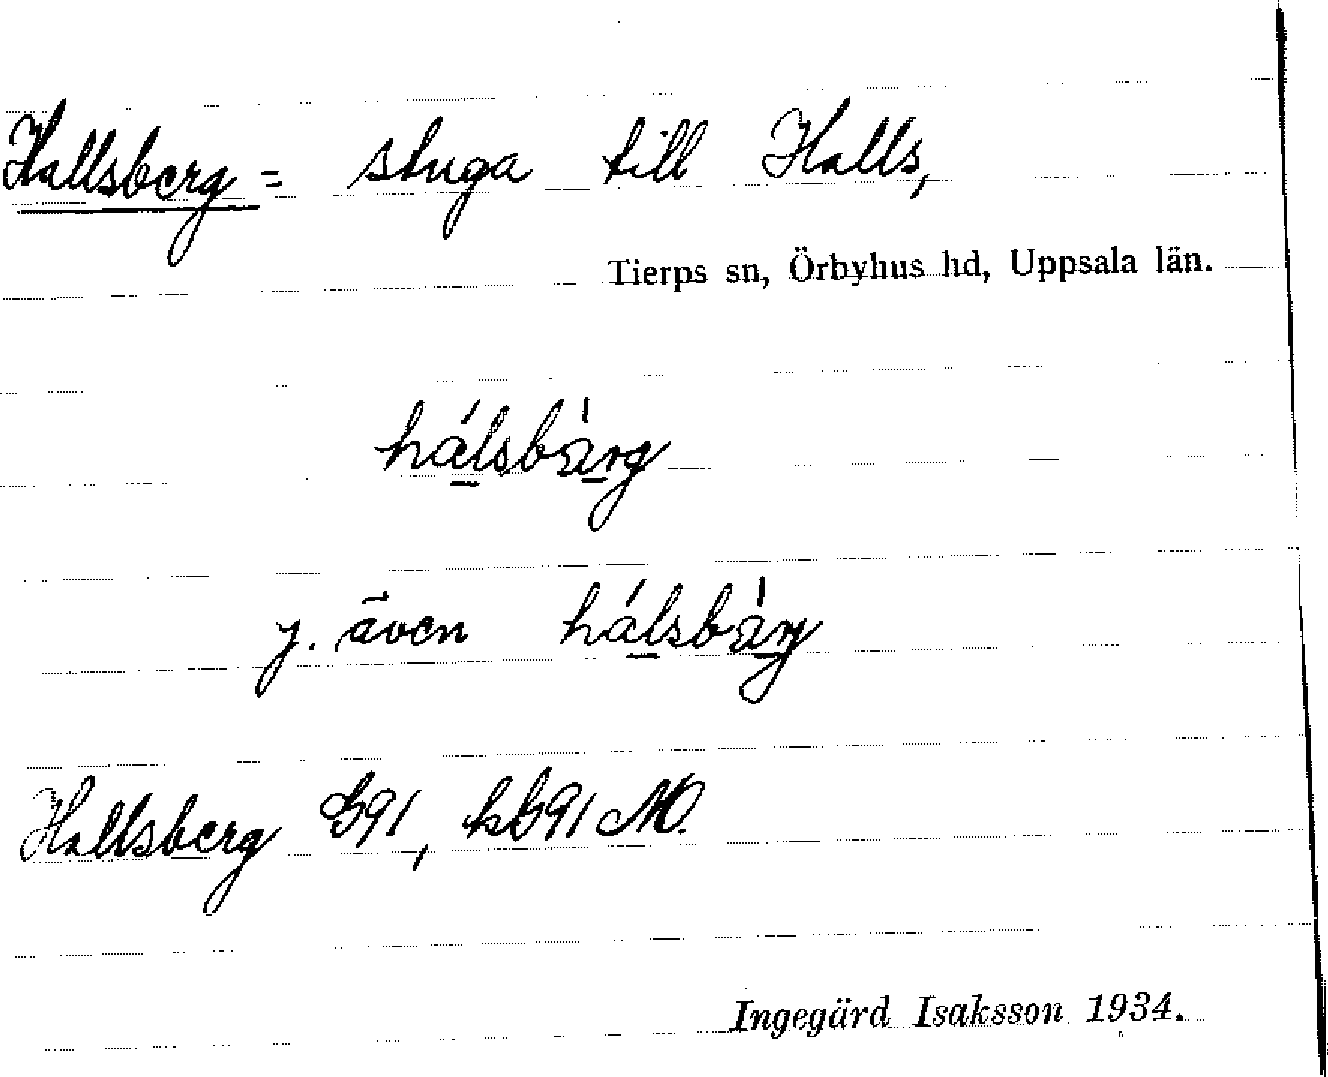 Hallsberg = stuga till Halls,
Tierps sn, Örbyhus hd, Uppsala län.
hálsbàrg
y. även hálsbàrj
Hallsberg G91, kG91 NO.
Ingegärd Isaksson 1934.